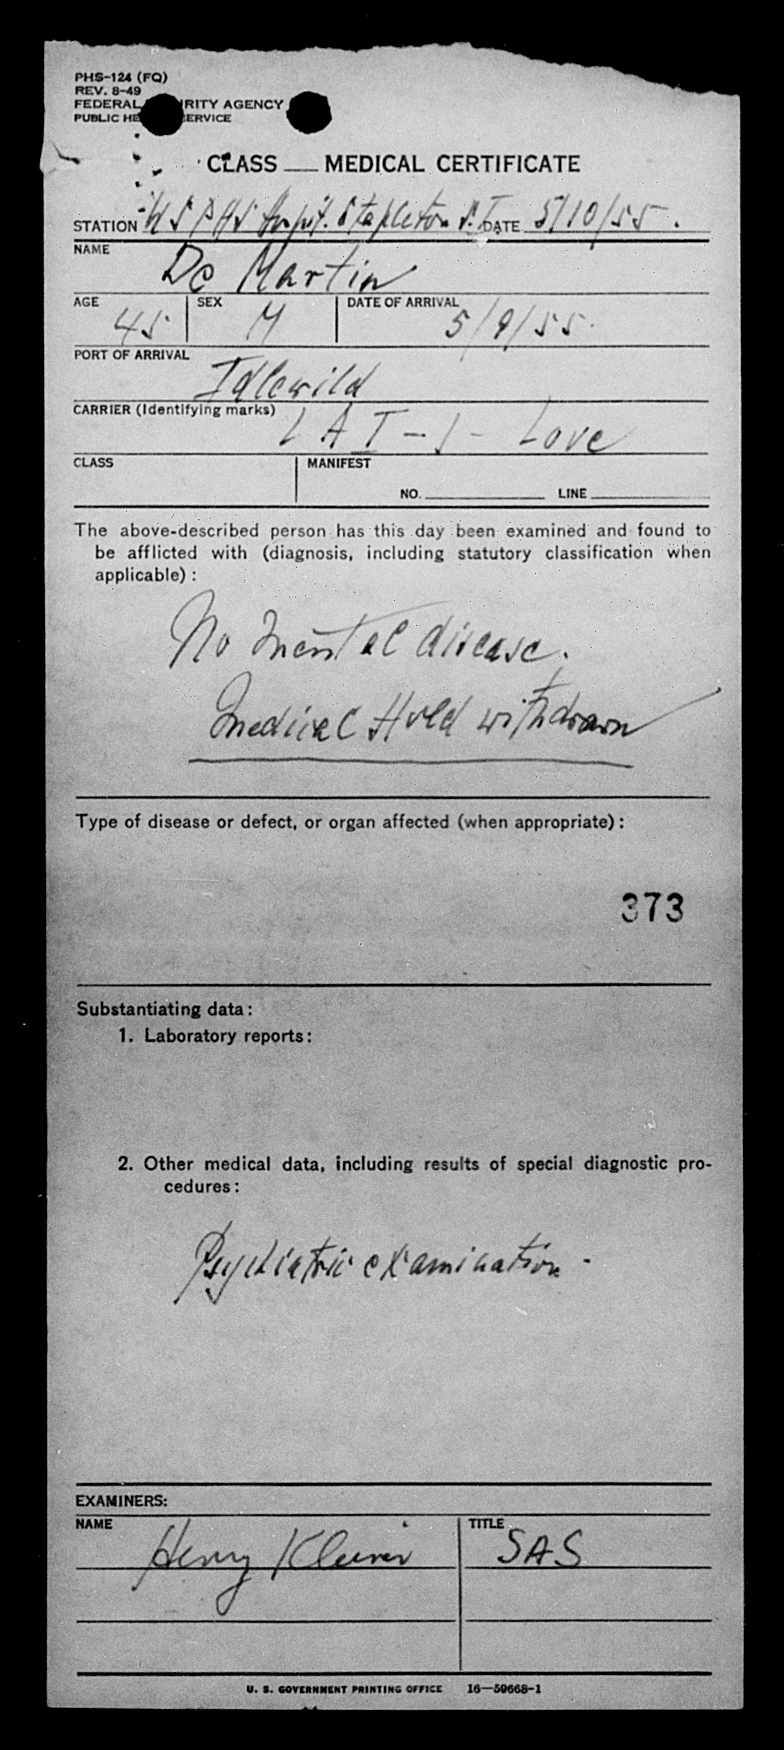 PHS-124 (FQ)
REV. 8-49
FEDERAL RITY AGENCY
PUBLIC HE SERVICE
CLASS ___ MEDICAL CERTIFICATE
STATION USPHS Hospit. Stapleton S.I. DATE 5/10/55.
NAME
De Martin
AGE SEX DATE OF ARRIVAL
45 M 5/9/55.
PORT OF ARRIVAL
Idlewild
CARRIER (Identifying marks)
LAI-1- Love
CLASS MANIFEST
NO. ___ LINE ___
The above-described person has this day been examined and found to
be afflicted with (diagnosis, including statutory classification when
applicable):
No mental disease.
Medical Hold withdrawn
Type of disease or defect, or organ affected (when appropriate):
373
Substantiating data:
1. Laboratory reports:
2. Other medical data, including results of special diagnostic pro-
cedures:
Psychiatric examination -
EXAMINERS:
NAME TITLE
Henry SAS
U. S. GOVERNMENT PRINTING OFFICE 16—59668-1